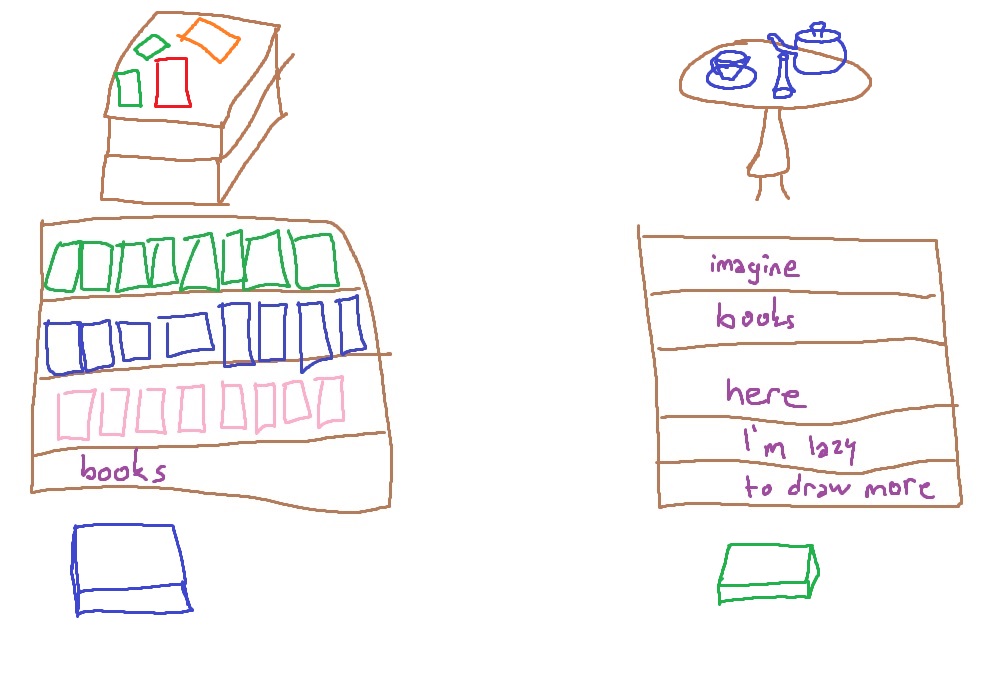 books
imagine
books
here
I'm lazy
to draw more